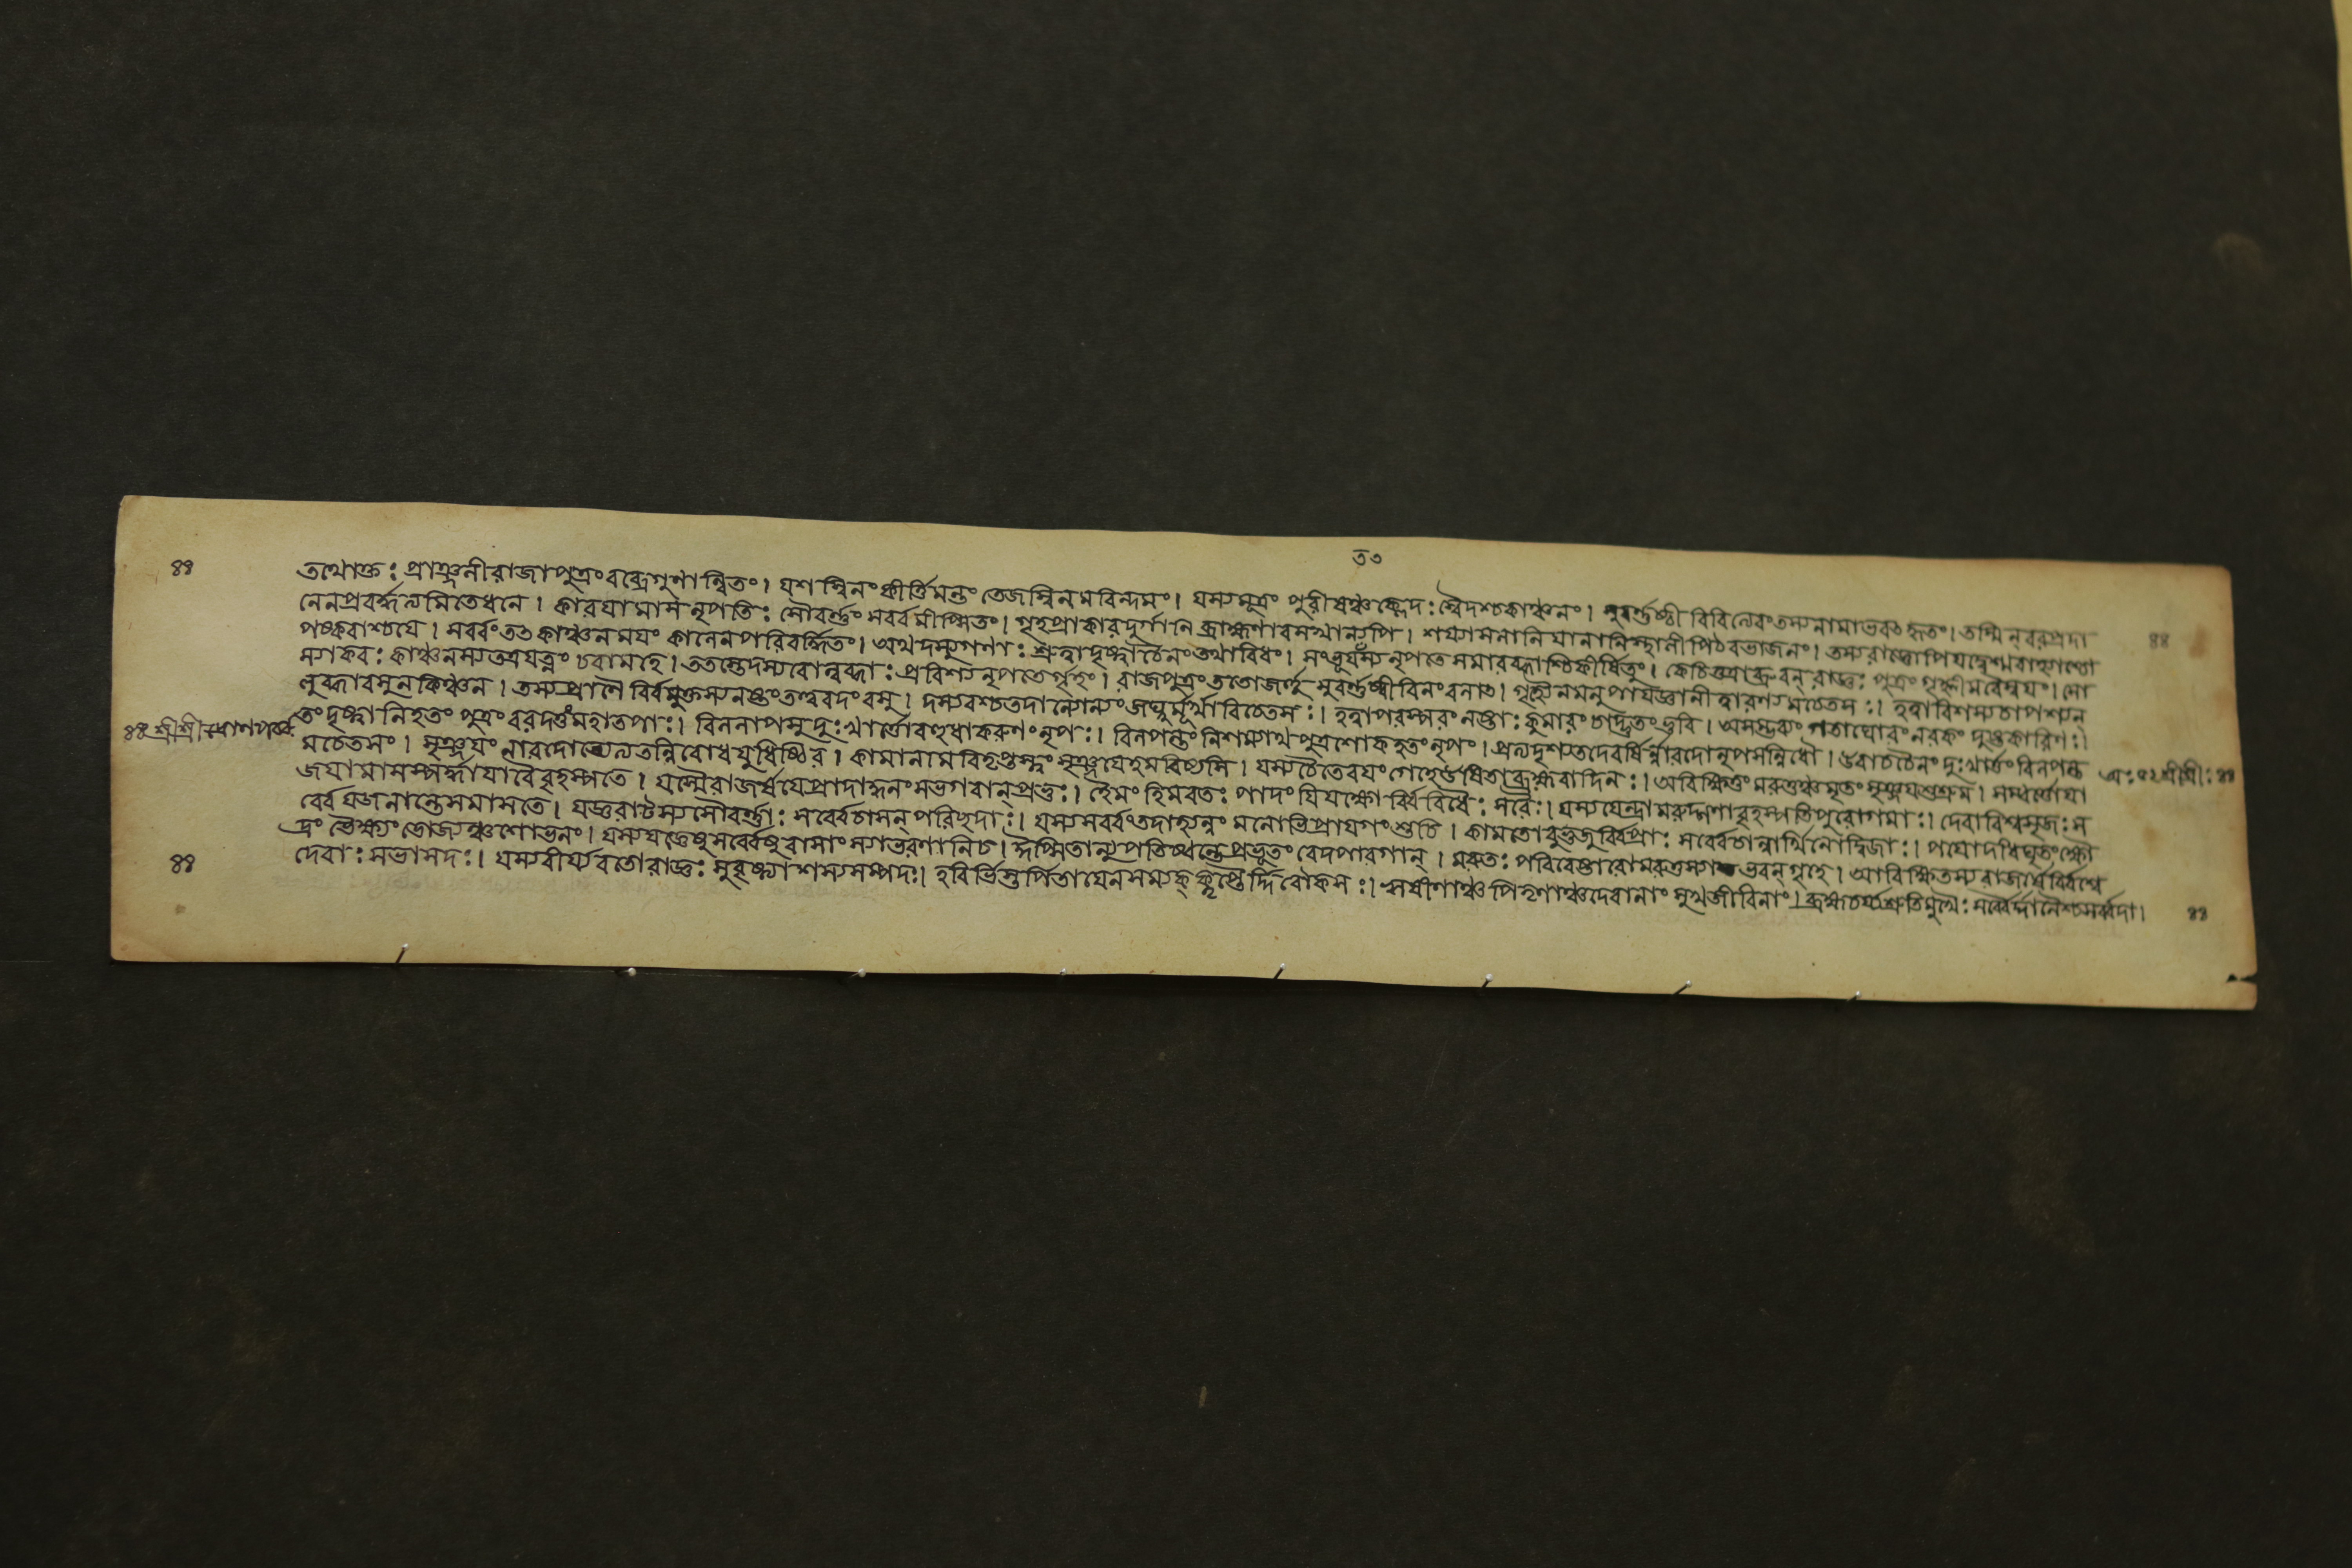 ৪৪
তথোক্তঃ প্রাঞ্জলীরাজাপুত্রংবব্রেগুণান্বিতং। যশস্বিনং কীর্ত্তিমন্তং তেজস্বিনমরিন্দমং। যস্যমূত্রং পুরীষঞ্চক্লেদঃ স্বেদশ্চকাঞ্চনং। সুবর্ণষ্ঠীবিরিত্যেবংতস্যনামাভবৎকৃতং। তস্মিন্বরপ্রদা
নেনপ্রবর্দ্ধত্যমিতেধনে। কারযামাস নৃপতিঃ সৌবর্ণং সর্ব্বমীপ্সিতং। গৃহপ্রাকারদুর্গানি ব্রাহ্মণাবসথান্যপি। শয্যাসনানি যানানিস্থালীপিঠরভাজনং। তস্যরাজ্ঞোপিযদ্বেশ্মবাহ্যাশ্চো ৪৪
পস্করাশ্চযে। সর্ব্বং তৎকাঞ্চনমযং কালেনপরিবর্দ্ধিতং। অথদস্যুগণাঃ শ্রুত্বাদৃষ্ট্বাচৈনংতথাবিধং। সংভূযতস্য নৃপতেঃ সমারব্ধাশ্চিকীর্ষিতুং। কেচিত্তত্রাব্রুবন্ রাজ্ঞঃ পুত্রং গৃহ্ণীমবৈস্বযং। সো
স্যাকরঃ কাঞ্চনস্যতত্রযত্নং চরামহে। ততস্তেদস্যবোলুব্ধাঃ প্রবিশ্যনৃপতের্গৃহং। রাজপুত্রংততোজহ্রুঃ সুবর্ণষ্ঠীবিনংবলাৎ। গৃহ্যৈনমনুপাযজ্ঞানীত্বারণ্যমচেতসঃ। হত্বাবিশস্যচাপশ্যন
লুব্ধাবসুনকিঞ্চন। তস্যপ্রাণৈ র্বিমুক্তস্যনষ্টংতদ্বরদংবসু। দস্যবশ্চতদান্যোন্যংজঘ্নুর্মূর্খাবিচেতসঃ। হত্বাপরস্পরং নষ্টাঃ কুমারং চাদ্ভুতংভুবি। অসম্ভবং গতাঘোরং নরকং দুষ্টকারিণঃ।
তংদৃষ্ট্বানিহতং পুত্রং বরদত্তংমহাতপাঃ। বিললাপসুদুঃখার্ত্তোবহুধাকরুণংনৃপঃ। বিলপন্তং নিশম্যাথপুত্রশোকহতংনৃপং। প্রত্যদৃশ্যতদেবর্ষির্নারদোনৃপসন্নিধৌ। উবাচচৈনং দুঃখার্ত্তংবিলপন্ত
৪৪ শ্রীশ্রীদ্রোণপর্ব্ব মচেতসং। সৃঞ্জযং নারদোভ্যেত্যতন্নিবোধযুধিষ্ঠির। কামানামবিতৃপ্তস্ত্বং সৃঞ্জযেহমরিষ্যসি। যস্যচৈতেবযংগেহেউষিতাব্রহ্মবাদিনঃ। আবিক্ষিতং মরুত্তঞ্চমৃতং সৃঞ্জযশুশ্রুম। সম্বর্ত্তোযা
জযামাসস্পর্দ্ধাযাবৈবৃহস্পতে। যস্মৈরাজর্ষযেপ্রাদাদ্ধনংসভগবান্প্রভুঃ। হৈমংহিমবতঃ পাদং যিযক্ষোর্বিবিধৈঃ সবৈঃ। যস্যসেন্দ্রামরুদ্গণাবৃহস্পতিপুরোগমাঃ। দেবাবিশ্বসৃজঃ স
র্ব্বেযজনান্তেসমাসতে। যজ্ঞবাটস্যসৌবর্ণাঃ সর্ব্বেচাসন্ পরিছদাঃ। যস্যসর্ব্বংতদাহ্যন্নং মনোভিপ্রাযগংশুচি। কামতোবুভুজুর্বিপ্রাঃ সর্ব্বেচান্নার্থিনোদ্বিজাঃ। পযোদধিঘৃতংক্ষৌ
দ্রং ভৈক্ষ্যংভোজ্যঞ্চশোভনং। যস্যযজ্ঞেষুসর্ব্বেষুবাসাংস্যাভরণানিচ। ঈপ্সিতান্যুপতিষ্ঠন্তেপ্রভূতং বেদপারগান্। মরুতঃ পরিবেষ্টারোমরুত্তস্যাভবন্গৃহে। আবিক্ষিতস্যরাজর্ষের্বিশ্বে
৪৪ দেবাঃ সভাসদঃ। যস্যবীর্য্যবতোরাজ্ঞঃ সুবৃষ্ট্যাশস্যসম্পদঃ। হবির্ভিস্তর্পিতাযেনসম্যক্ক্লৃপ্তৈর্দ্দিবৌকসঃ। ঋষীণাঞ্চপিতৄণাঞ্চদেবানাং সুখজীবিনাং। ব্রহ্মচর্য্যশ্রুতিমুখৈঃ সর্ব্বৈর্দ্দানৈশ্চসর্ব্বদা। ৪৪